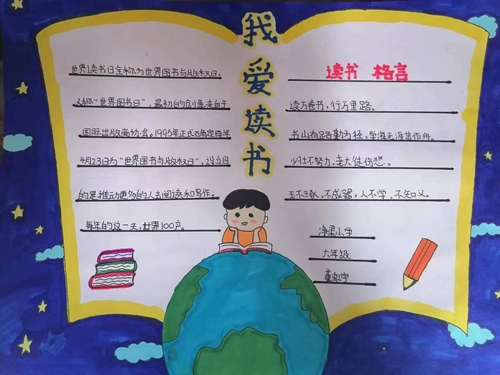 我爱读书
世界读书日全称为世界图书与版权日,
又称"世界图书日",最初的创意来自于
国际出版商协会。1995年正式确定每年
4月23日为"世界图书与版权日",设立目
的是推动更多的人去阅读和写作。
每年的这一天,世界100户。
读书 格言
读万卷书,行万里路。
书山有路勤为径,学海无涯苦作舟。
少壮不努力,老大徒伤悲。
玉不琢,不成器,人不学,不知义。
小学
六年级